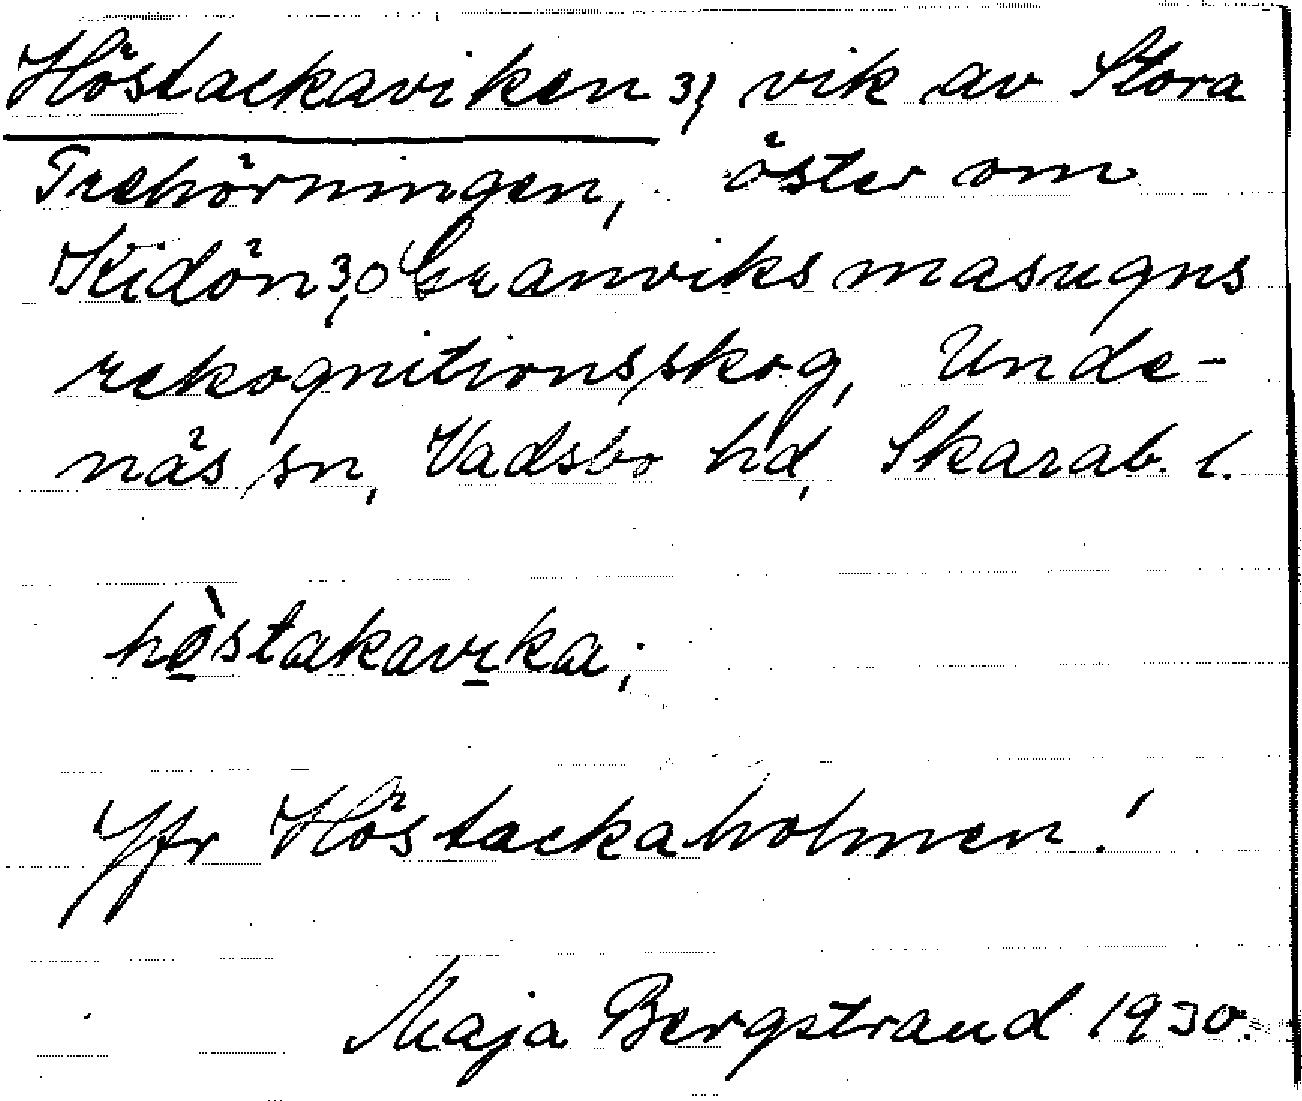 Höstackaviken 3), vik av Stora
Trehörningen, öster om
Kidön 3, o Granviks masugns
rekognitionsskog, Unde-
näs sn, Vadsbo hd, Skarab. l.
hö̀stakavika;
Jfr Höstackaholmen!
Maja Bergstrand 1930.